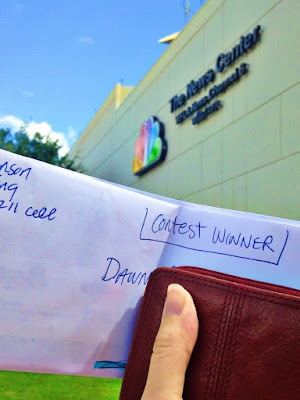 The News Center
nson
ng
211 cell
Contest WINNER
DAWN